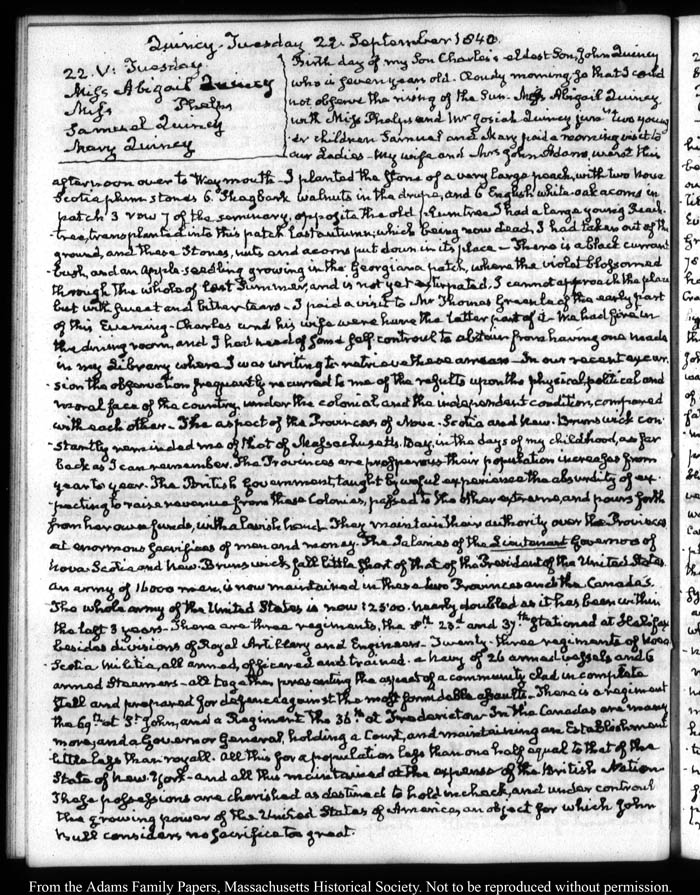 Quincy. Tuesday 22. September 1840.
22. V: Tuesday.
Miss Abigail Quincy
Miss Phelps
Samuel Quincy
Mary Quincy
Birth day of my Son Charles's eldest Son, John Quincy
who is seven years old. Cloudy morning, so that I could
not observe the rising of the Sun. Miss Abigail Quincy
with Miss Phelps and Mr Josiah Quincy junr's two young
er children Samuel and Mary paid a morning visit to
our Ladies. My wife and Mrs John Adams went this
afternoon over to Weymouth. I planted the stone of a very large peach, with two Nova
Scotia plum-stones 6. Shagbark walnuts in the drupe, and 6 English white oak acorns in
patch 3 row 7 of the seminary, opposite the old plumtree. I had a large young Peach
tree, transplanted into this patch last autumn; which being now dead, I had taken out of the
ground, and these Stones, nuts and acorns put down in its place. There is a black currant
bush, and an Apple-seedling growing in the Georgiana patch, where the violet blossomed
through the whole of last Summer, and is not yet extirpated. I cannot approach the place
but with sweet and bitter tears. I paid a visit to Mr Thomas Greenleaf the early part
of this Evening. Charles and his wife were here the latter part of it. We had fire in
the dining room, and I had need of some self controul to abstain from having one made
in my Library where I was writing to retrieve these arrears. In our recent excur
sion the observation frequently recurred to me of the results upon the physical, political and
moral face of the country, under the colonial and the independent condition, compared
with each other. The aspect of the Provinces of Nova-Scotia and New-Brunswick con
stantly reminded me of that of Massachusetts Bay, in the days of my childhood, as far
back as I can remember. The Provinces are prosperous their population increases from
year to year. The British Government, taught by woful experience the absurdity of ex
pecting to raise revenue from these Colonies, passed to the other extreme, and pours forth
from her own funds, with a lavish hand. They maintain their authority over the Provinces
at enormous sacrifices of men and money. The Salaries of the Lieutenant Governors of
Nova Scotia and New-Brunswick fall little short of that of the President of the United States.
An army of 16000 men, is now maintained in these two Provinces and the Canada's.
The whole army of the United States is now 12500. nearly doubled as it has been within
the last 3 years. There are three regiments, the 8th 23d and 37th stationed at Halifax
besides divisions of Royal Artillery and Engineers. Twenty-three regiments of Nova
Scotia Militia, all armed, officered and trained. a Navy of 26 armed vessels and 6
armed Steamers. all together presenting the aspect of a community clad in complete
steel and prepared for defence against the most formidable assaults. There is a regiment
the 69th at St John, and a Regiment the 36th at Fredericton. In the Canadas are many
more, and a Governor General, holding a Court, and maintaining an Establishment
little less than royall. All this for a population less than one half equal to that of the
State of New-York. and all this maintained at the expense of the British Nation
These possessions are cherished as destined to hold in check, and under controul
the growing power of the United States of America, an object for which John
Bull considers no sacrifice too great.
From the Adams Family Papers, Massachusetts Historical Society. Not to be reproduced without permission.